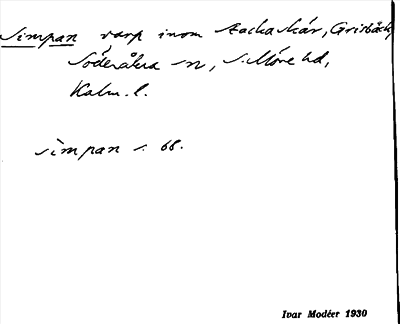 Simpan varp inom Stackaskär, Grisbäck,
Söderåkra sn, S. Möre hd,
Kalm. l.
simpan s. 68.
Ivar Modéer 1930